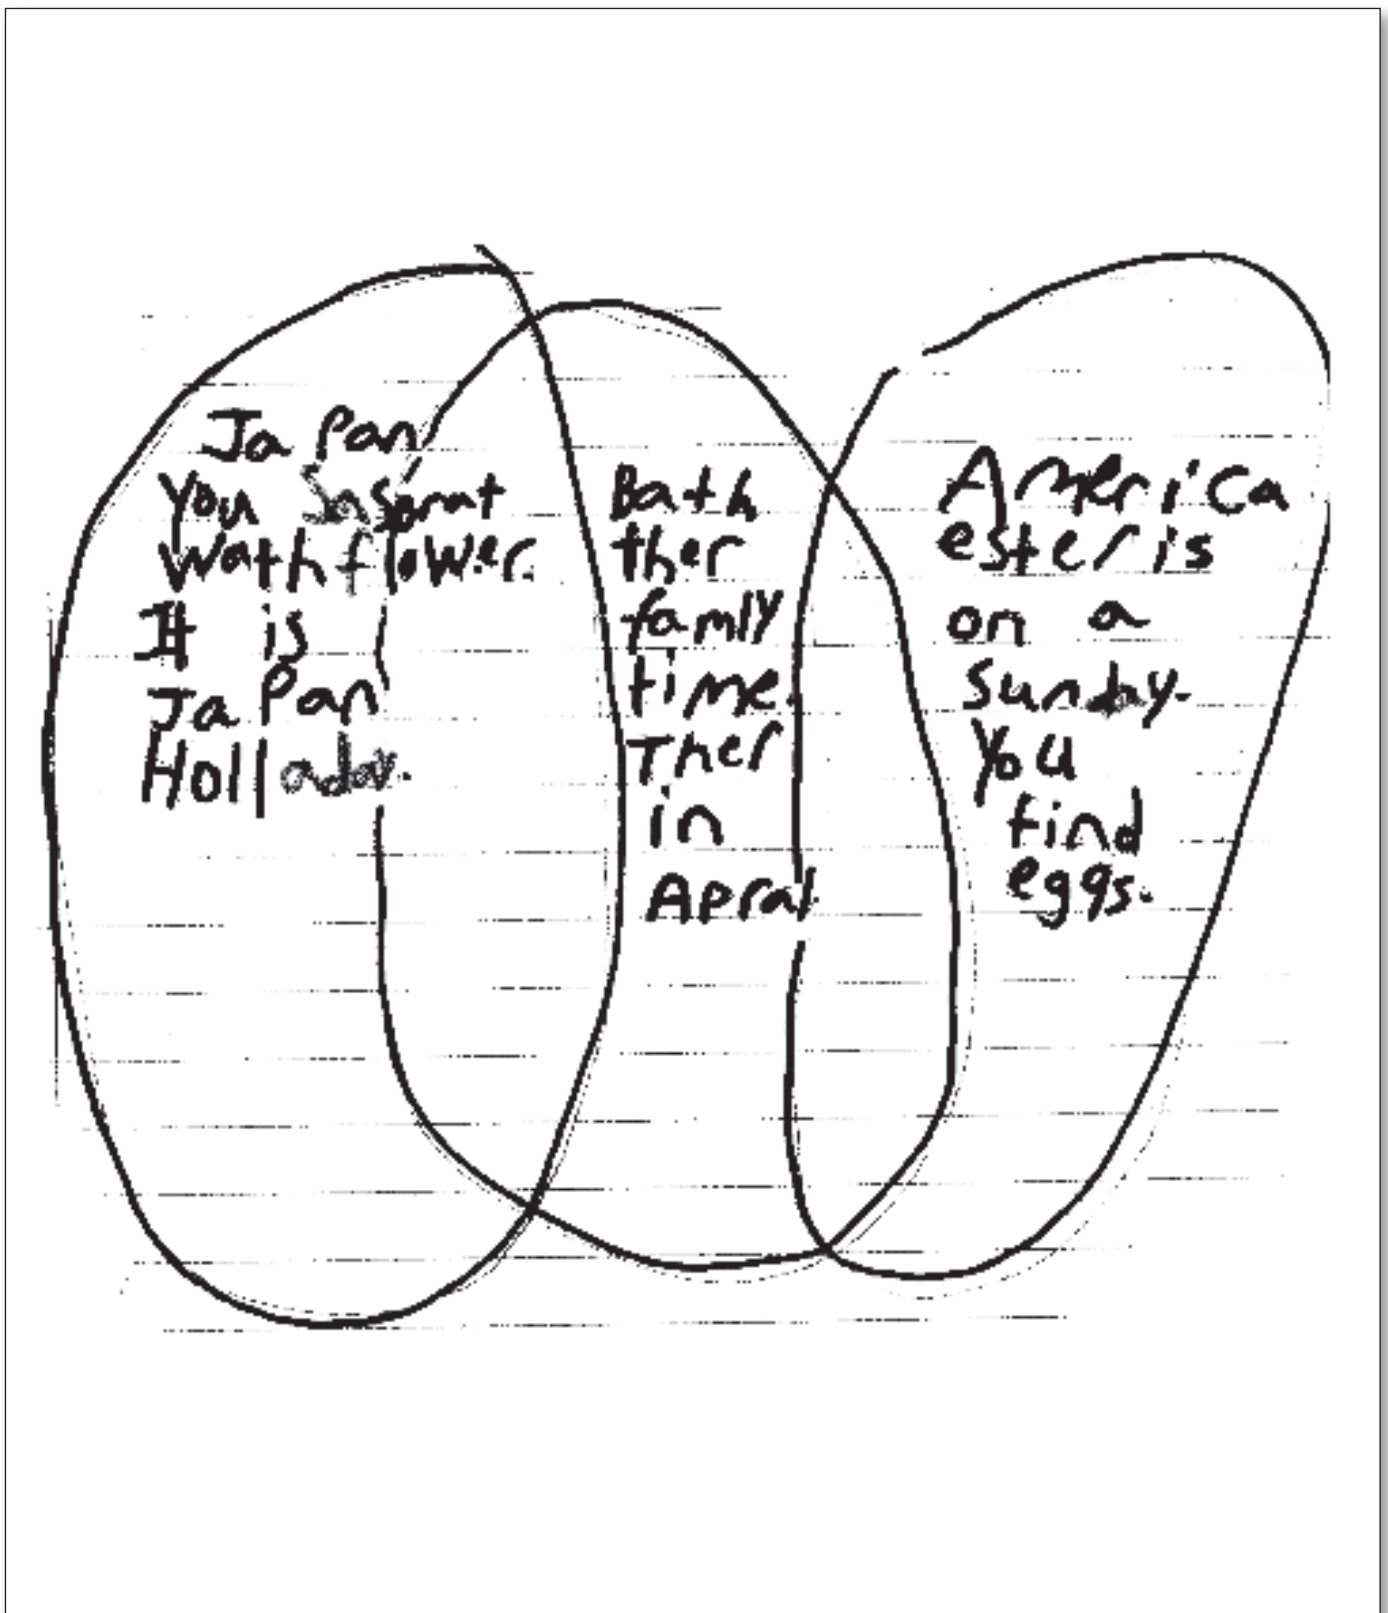 Ja Pan
You
wath flower.
It is
Ja Pan
Holladay.
Bath
ther
famly
time.
Ther
in
Apral
America
ester is
on a
Sunday.
You
find
eggs.